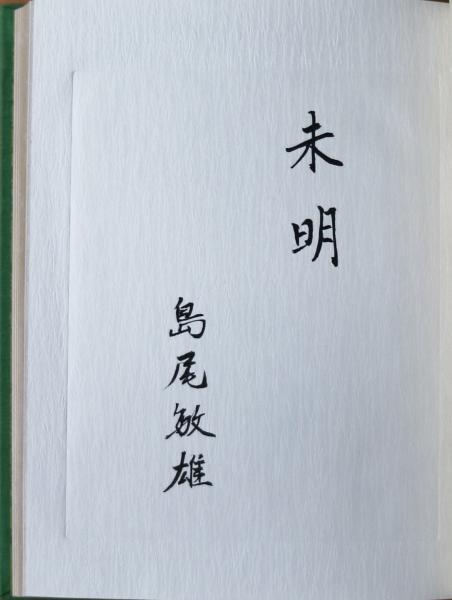 未明
島尾敏雄